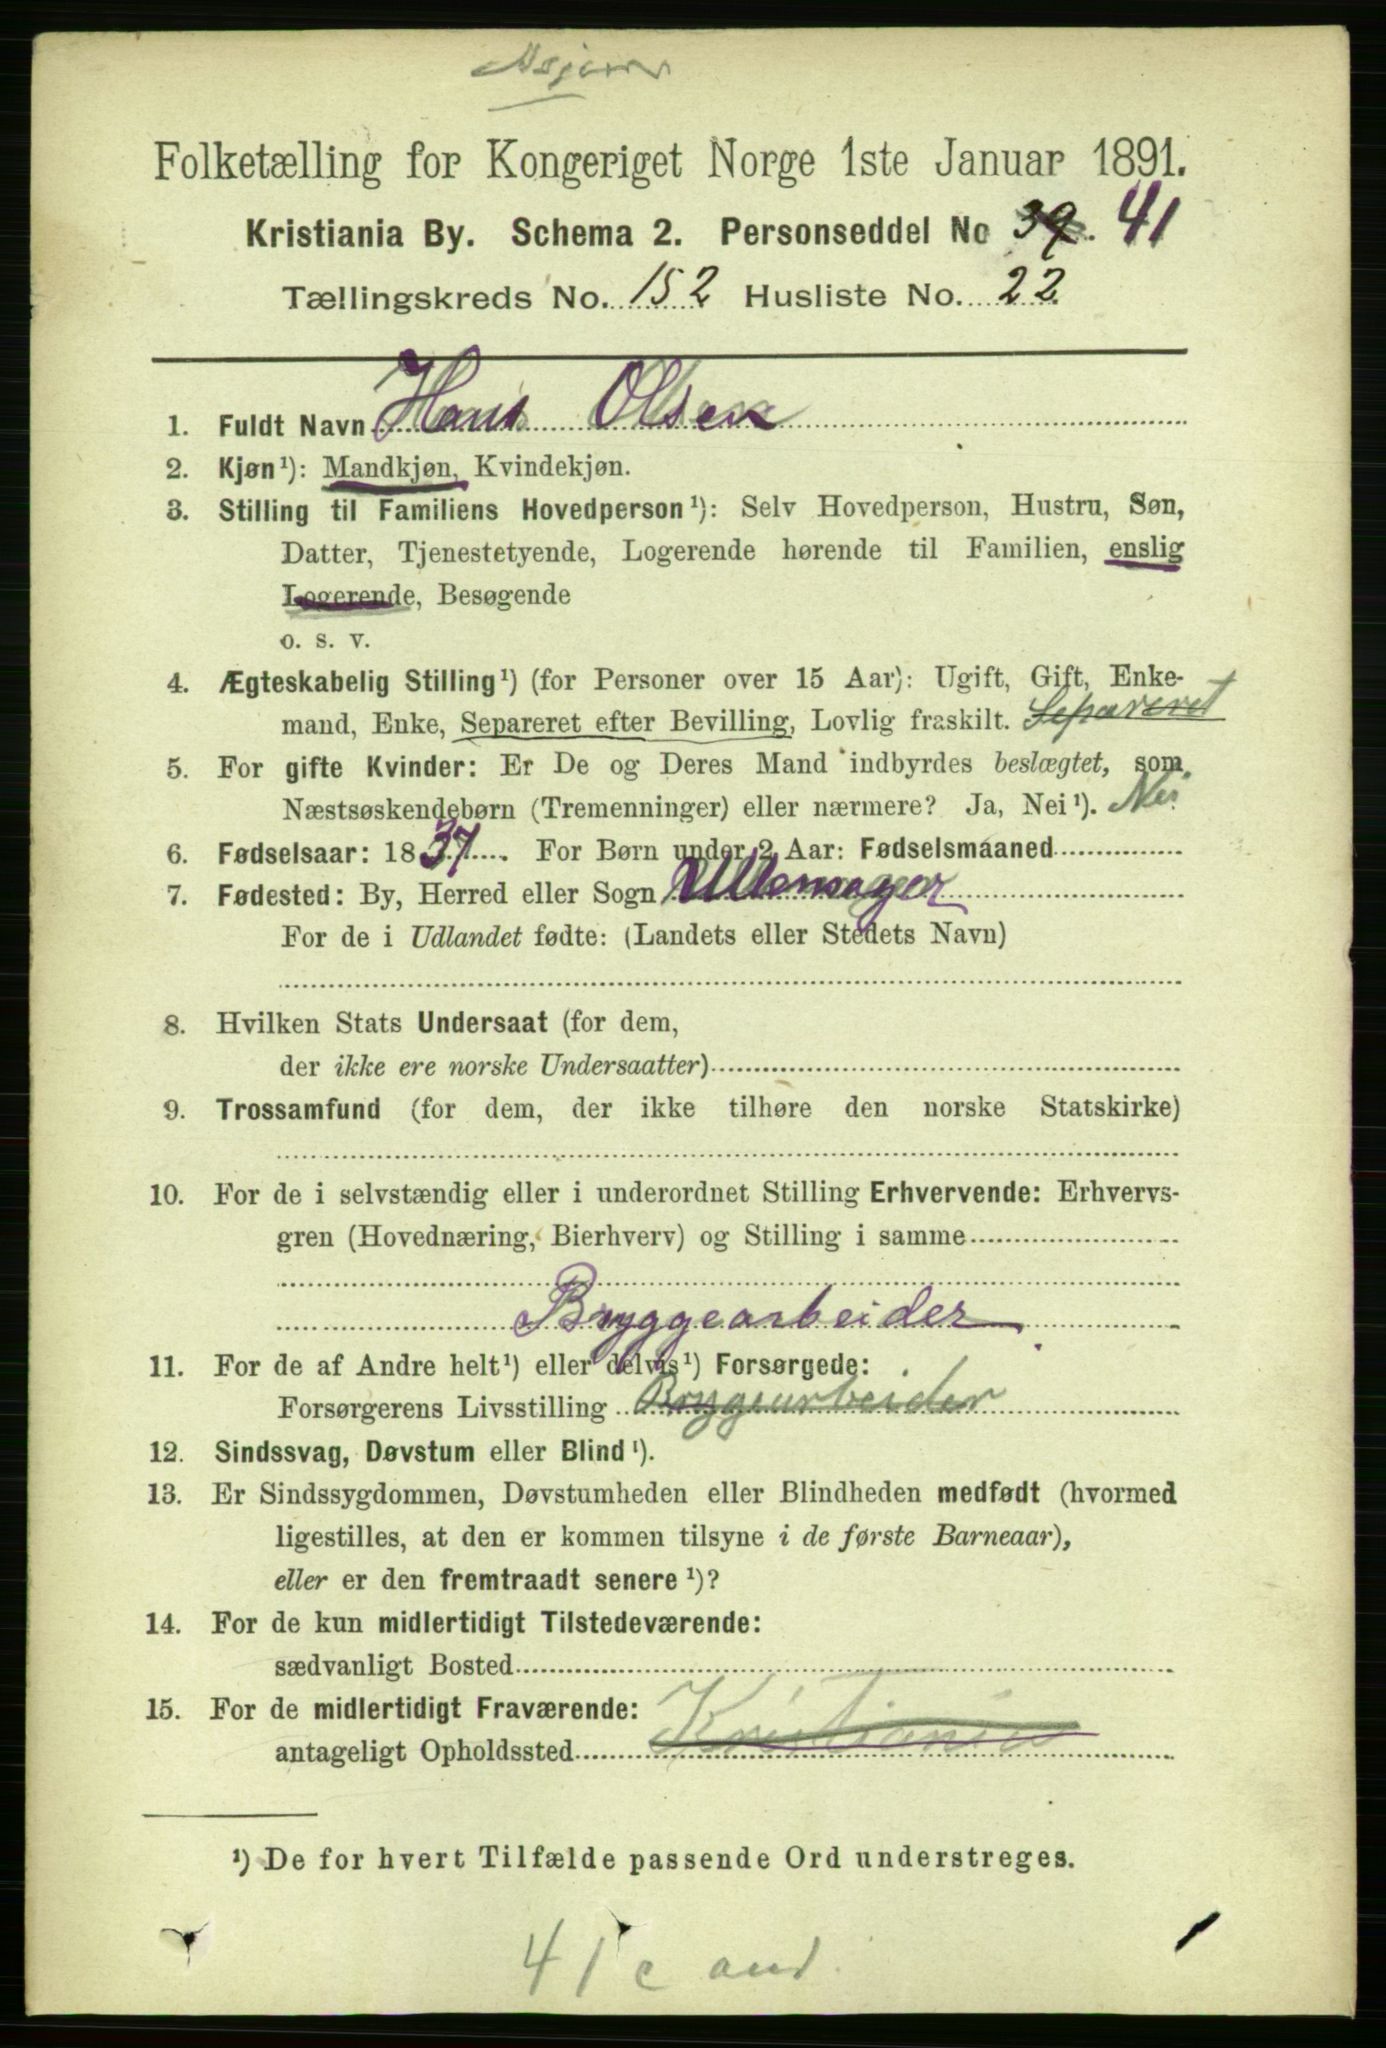 Folketælling for Kongeriget Norge 1ste Januar 1891.
Kristiania By. Schema 2. Personseddel No 39. 41
Tællingskreds No. 152 Husliste No. 22
1. Fuldt Navn Hans Olsen
2. Kjøn¹): Mandkjøn, Kvindekjøn.
3. Stilling til Familiens Hovedperson¹): Selv Hovedperson, Hustru, Søn,
Datter, Tjenestetyende, Logerende hørende til Familien, enslig
Logerende, Besøgende
o. s. v.
4. Ægteskabelig Stilling¹) (for Personer over 15 Aar): Ugift, Gift, Enke-
mand, Enke, Separeret efter Bevilling, Lovlig fraskilt. Separeret
5. For gifte Kvinder: Er De og Deres Mand indbyrdes beslægtet, som
Næstsøskendebørn (Tremenninger) eller nærmere? Ja, Nei¹). Nei
6. Fødselsaar: 1837. For Børn under 2 Aar: Fødselsmaaned
7. Fødested: By, Herred eller Sogn Ullensager
For de i Udlandet fødte: (Landets eller Stedets Navn)
8. Hvilken Stats Undersaat (for dem,
der ikke ere norske Undersaatter)
9. Trossamfund (for dem, der ikke tilhøre den norske Statskirke)
10. For de i selvstændig eller i underordnet Stilling Erhvervende: Erhvervs-
gren (Hovednæring, Bierhverv) og Stilling i samme
Bryggearbeider
11. For de af Andre helt¹) eller delvis¹) Forsørgede:
Forsørgerens Livsstilling Brygearbeider
12. Sindssvag, Døvstum eller Blind¹).
13. Er Sindssygdommen, Døvstumheden eller Blindheden medfødt (hvormed
ligestilles, at den er kommen tilsyne i de første Barneaar),
eller er den fremtraadt senere¹)?
14. For de kun midlertidigt Tilstedeværende:
sædvanligt Bosted
15. For de midlertidigt Fraværende:
antageligt Opholdssted Kristiania
¹) De for hvert Tilfælde passende Ord understreges.
41 c and